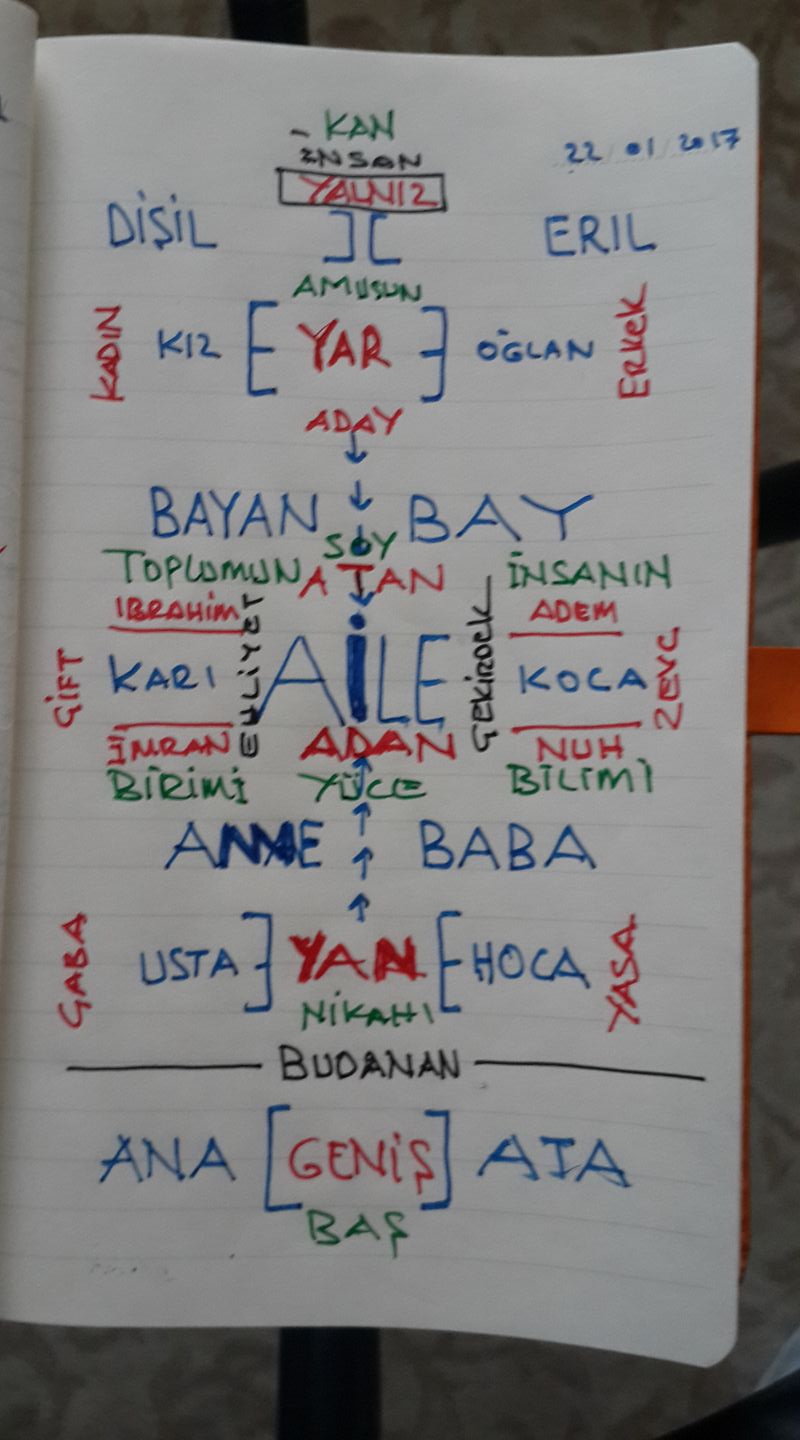 - KAN
22 01 2017
İNSAN
YALNIZ
DİŞİL ][ ERIL
AMUSUN
KADIN KIZ [ YAR ] OĞLAN ERKEK
ADAY
BAYAN BAY
SOY
TOPLUMUN ATAN İNSANIN
IBRAHİM ADEM
ÇİFT KARI EHLİYET AİLE ÇEKİRDEK KOCA ZEVC
İMRAN ADAN NUH
BİRİMİ YÜCE BİLİMİ
ANNE BABA
ÇABA USTA ] YAN [ HOCA YASA
NİKAHI
BUDANAN
ANA [GENİŞ] ATA
BAŞ